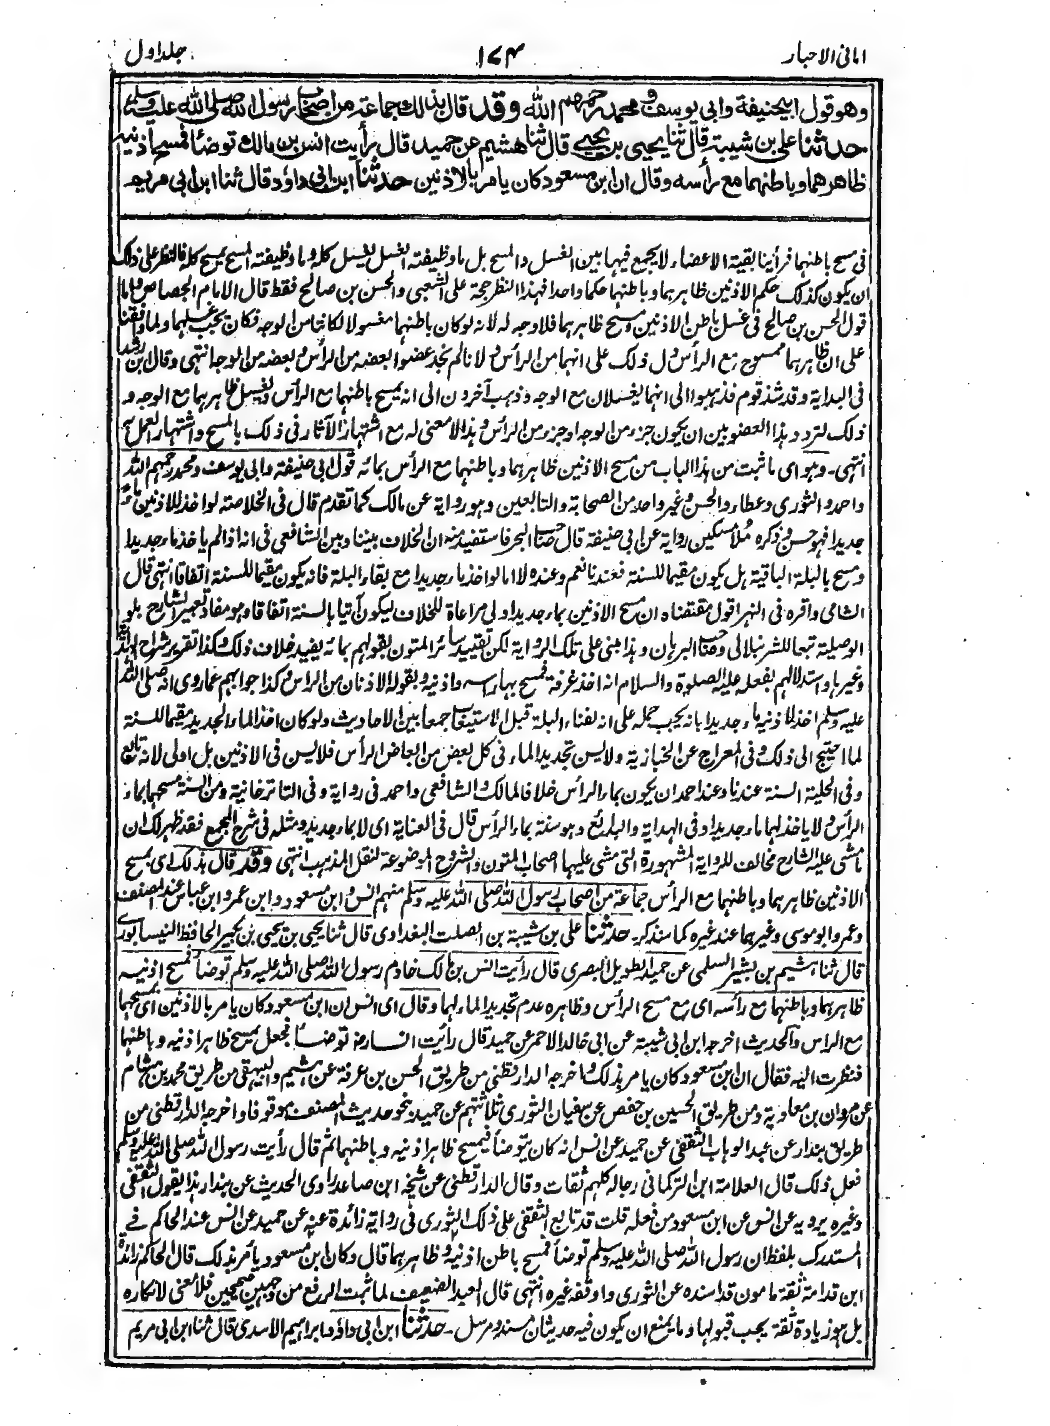 امانی الاحبار
١٧٤
جلد اول
وهو قول ابیحنیفة وابی یوسف ومحمد رحمهم الله وقد قال بذلك جماعة من اصحاب رسول الله صلی الله علیه وسلم
حدثنا علی بن شیبة قال ثنا یحیی بن یحیی قال ثنا هشیم عن حمید قال رأیت انس بن مالك توضأ فمسح اذنیه
ظاهرهما وباطنهما مع رأسه وقال ان ابن مسعود کان یامر بالاذنین حدثنا ابن ابی داؤد قال ثنا ابن ابی مریم
فی مسح باطنهما فرأینا بقیة الاعضاء لا یجمع فیها بین الغسل والمسح بل ما وظیفته الغسل یغسل کله وما وظیفته المسح یمسح کله فالنظر علی ذلك
ان یکون کذلك حکم الاذنین ظاهرهما وباطنهما حکما واحدا فهذا النظر حجة علی الشعبی والحسن بن صالح فقط قال الامام الجصاص فاما
قول الحسن بن صالح فی غسل باطن الاذنین ومسح ظاهرهما فلا وجه له لانه لو کان باطنهما مغسولا لکانتا من الوجه فکان یجب غسلهما ولما وافقنا
علی ان ظاهرهما ممسوح مع الرأس دل ذلك علی انهما من الرأس ولانا لم نجد عضوا بعضه من الرأس وبعضه من الوجه انتهی وقال ابن رشد
فی البدایة وقد شذ قوم فذهبوا الی انهما یغسلان مع الوجه وذهب آخرون الی انه یمسح باطنهما مع الرأس ویغسل ظاهرهما مع الوجه و
ذلك لتردد هذا العضو بین ان یکون جزء من الوجه او جزء من الرأس وهذا لا معنی له مع اشتهار الآثار فی ذلك بالمسح واشتهار العمل به
انتهی۔ وهو ای ما ثبت من هذا الباب من مسح الاذنین ظاهرهما وباطنهما مع الرأس بمائه قول ابی حنیفة وابی یوسف ومحمد رحمهم الله
واحمد والثوری وعطاء والحسن وغیر واحد من الصحابة والتابعین وهو روایة عن مالك کما تقدم قال فی الخلاصة لو اخذ للاذنین ماء
جدیدا فهو حسن وذکره ملا مسکین روایة عن ابی حنیفة قال صاحب البحر فاستفید منه ان الخلاف بیننا وبین الشافعی فی انه اذا لم یاخذ ماء جدیدا
ومسح بالبلة الباقیة هل یکون مقیما للسنة فعندنا نعم وعنده لا اما لو اخذ ماء جدیدا مع بقاء البلة فانه یکون مقیما للسنة اتفاقا انتهی قال
الشامی واقره فی النهر اقول مقتضاه ان مسح الاذنین بماء جدید اولی مراعاة للخلاف لیکون آتیا بالسنة اتفاقا وهو مفاد تعبیر الشارح بلو
الوصلیة تبعا للشرنبلالی وصاحب البرهان وهذا مبنی علی تلك الروایة لکن تقیید سائر المتون بقولهم بمائه یفید خلاف ذلك وکذا تقریر شراح الهدایة
وغیرها واستدلالهم بفعله علیه الصلوة والسلام انه اخذ غرفة فمسح بها رأسه واذنیه وبقوله الاذنان من الرأس وکذا جوابهم عما روی انه صلی الله
علیه وسلم اخذ لاذنیه ماء جدیدا بانه یجب حمله علی انه لفناء البلة قبل الاستیعاب جمعا بین الاحادیث ولو کان اخذ الماء الجدید مقیما للسنة
لما احتیج الی ذلك وفی المعراج عن الخبازیة ولا یسن تجدید الماء فی کل بعض من ابعاض الرأس فلا یسن فی الاذنین بل اولی لانه تابع
وفی الحلیة السنة عندنا وعند احمد ان یکون بماء الرأس خلافا لمالك والشافعی واحمد فی روایة وفی التاترخانیة ومن السنة مسحهما بماء
الرأس ولا یاخذ لهما ماء جدیدا وفی الهدایة والبدائع وهو سنة بماء الرأس قال فی العنایة ای لا بماء جدید ومثله فی شرح المجمع فقد ظهر لك ان
ما مشی علیه الشارح مخالف للروایة المشهورة التی مشی علیها اصحاب المتون والشروح الموضوعة لنقل المذهب انتهی وقد قال بذلك ای بمسح
الاذنین ظاهرهما وباطنهما مع الرأس جماعة من اصحاب رسول الله صلی الله علیه وسلم منهم انس وابن مسعود وابن عمر وابن عباس عند المصنف
وعمر وابو موسی وغیرهما عند غیره کما سنذکر۔ حدثنا علی بن شیبة بن الصلت البغدادی قال ثنا یحیی بن یحیی بن بکیر الحافظ النیسابوری
قال ثنا هشیم بن بشیر السلمی عن حمید الطویل البصری قال رأیت انس بن مالك خادم رسول الله صلی الله علیه وسلم توضأ فمسح اذنیه
ظاهرهما وباطنهما مع رأسه ای مع مسح الرأس وظاهره عدم تجدید الماء لهما وقال ای انس ان ابن مسعود کان یامر بالاذنین ای بمسحهما
مع الراس والحدیث اخرجه ابن ابی شیبة عن ابی خالد الاحمر عن حمید قال رأیت انسا رضـ توضأ فجعل یمسح ظاهر اذنیه وباطنهما
فنظرت الیه فقال ان ابن مسعود کان یامر بذلك واخرجه الدارقطنی من طریق الحسن بن عرفة عن هشیم والبیهقی من طریق محمد بن هشام
عن مروان بن معاویة ومن طریق الحسین بن حفص عن سفیان الثوری ثلاثتهم عن حمید بنحو حدیث المصنف موقوفا واخرجه الدارقطنی من
طریق بندار عن عبد الوهاب الثقفی عن حمید عن انس انه کان یتوضأ فیمسح ظاهر اذنیه وباطنهما ثم قال رأیت رسول الله صلی الله علیه وسلم
فعل ذلك قال العلامة ابن الترکمانی رجاله کلهم ثقات وقال الدارقطنی عن شیخه ابن صاعد راوی الحدیث عن بندار هذا یقول الثقفی
وغیره یرویه عن انس عن ابن مسعود من فعله قلت قد تابع الثقفی علی ذلك الثوری فی روایة زائدة عنه عن حمید عن انس عند الحاکم فی
المستدرك بلفظ ان رسول الله صلی الله علیه وسلم توضأ فمسح باطن اذنیه وظاهرهما قال وکان ابن مسعود یأمر بذلك قال الحاکم زائدة
ابن قدامة ثقة مامون قد اسنده عن الثوری واوقفه غیره انتهی قال العبد الضعیف لما ثبت الرفع من وجهین صحیحین فلا معنی لانکاره
بل هو زیادة ثقة یجب قبولها وما یمنع ان یکون فیه حدیثان مسند ومرسل۔ حدثنا ابن ابی داؤد ابراهیم الاسدی قال ثنا ابن ابی مریم